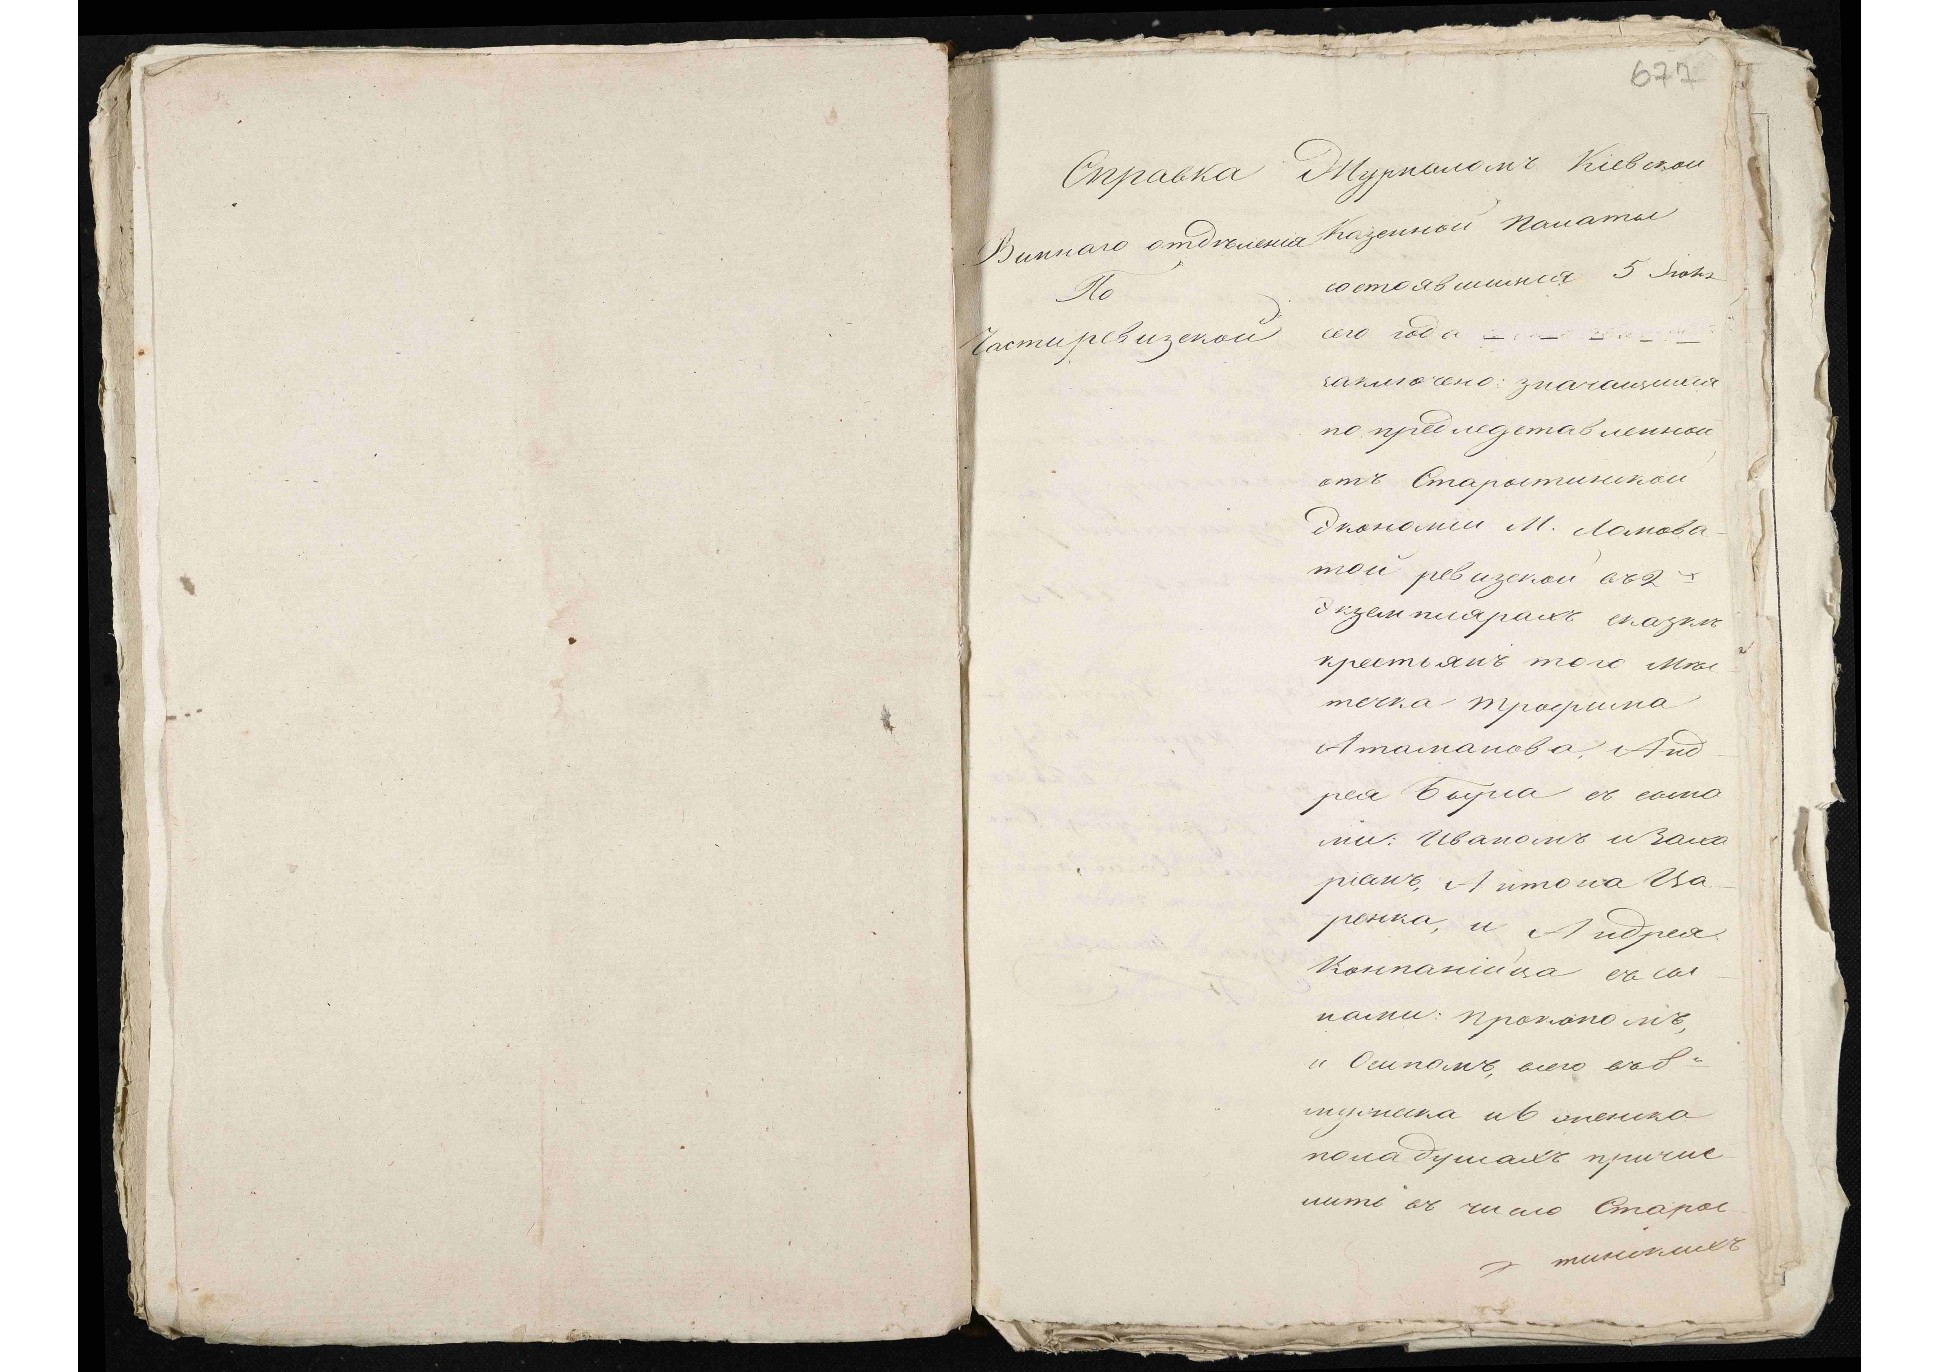 677
Справка
Виннаго отдѣленія
По
Части ревизской
Журналомъ Кіевской
Казенной Палаты
состоявшимся 5 Іюня
сего года
заключено: значащихся
по предъ
отъ Старостинской
Экономіи М. Ламова-
той ревизской въ 2-х
экземплярахъ сказкѣ
крестьянъ того Мѣс-
течка Трофима
Атаманова, Анд-
рея Бугла съ сына
ми: Иваномъ и Заха
ріемъ, Антона Ца-
ренка, и Андрея
Компанійца съ сы-
нами: Прокопомъ,
и Осипомъ, всего въ 8-и
мужеска и 6 женска
пола душахъ причис-
лить въ число Старос-
тинскихъ